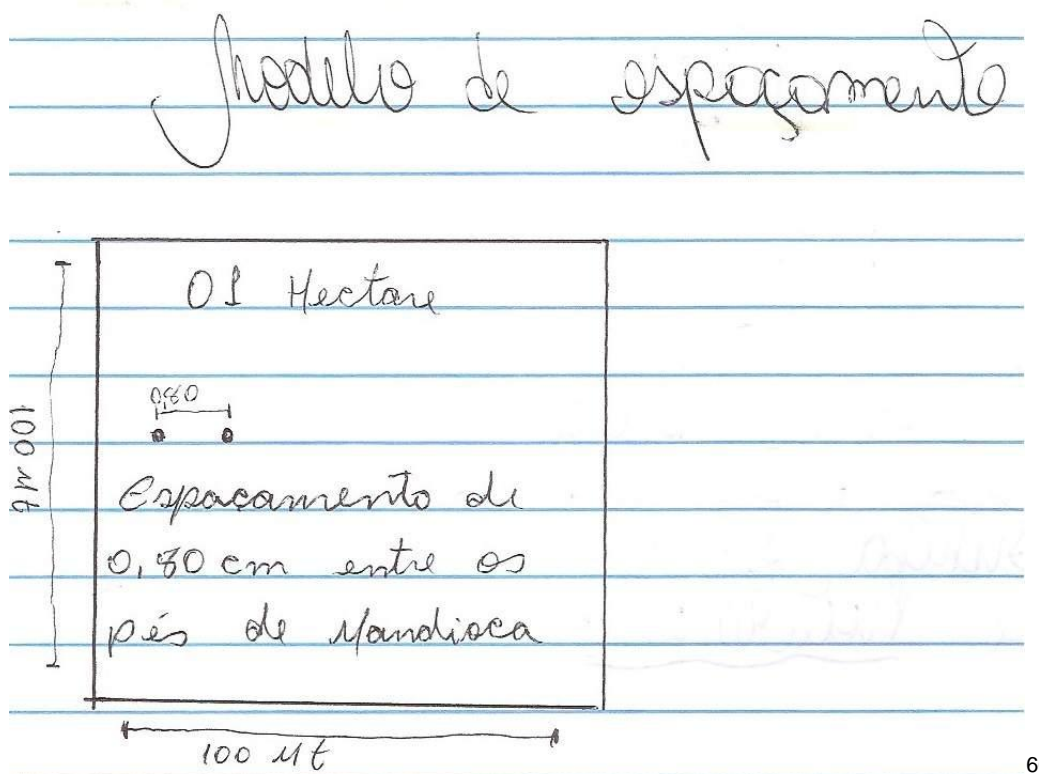 Modelo de espaçamento
01 Hectare
0,80
100 Mt
Espaçamento de
0,80 cm entre os
pés de Mandioca
100 Mt
6